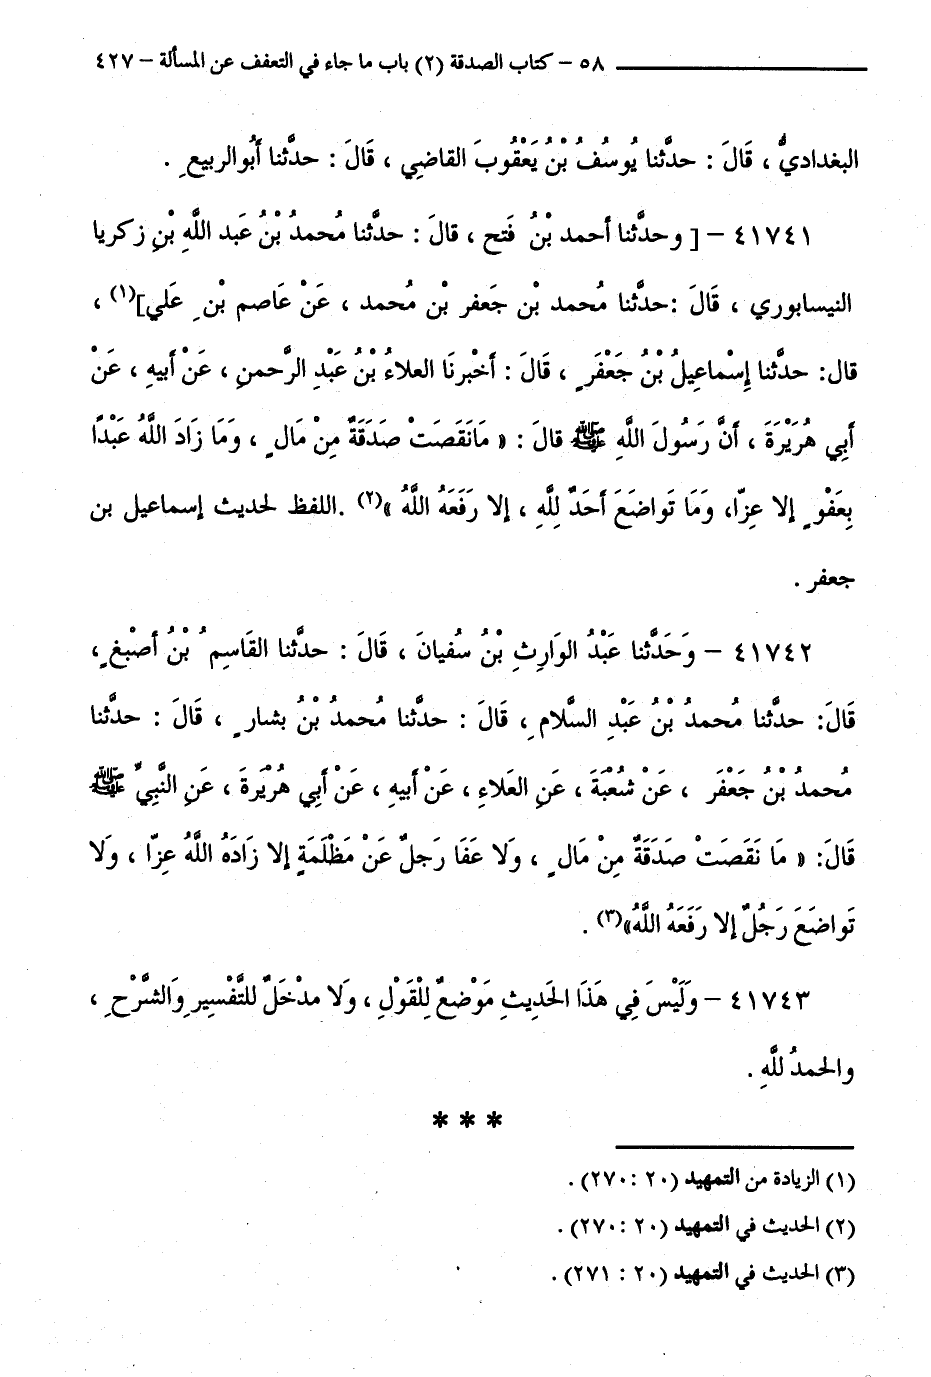 ٥٨ – كتاب الصدقة (٢) باب ما جاء في التعفف عن المسألة – ٤٢٧
البغداديُّ ، قَالَ : حدَّثنا يُوسُفُ بْنُ يَعْقُوبَ القاضِي ، قَالَ : حدَّثنا أَبُو الربيعِ .
٤١٧٤١ – [ وحدَّثنا أحمد بْنُ فَتح ، قالَ : حدَّثنا مُحمدُ بْنُ عَبد اللَّهِ بْنِ زكريا
النيسابوري ، قَالَ :حدَّثنا مُحمد بْن جَعفر بْن مُحمد ، عَنْ عَاصم بْنِ عَلي](١) ،
قال: حدَّثنا إِسْماعِيلُ بْنُ جَعْفَرٍ ، قَالَ : أَخْبرنَا العلاءُ بْنُ عَبْدِ الرَّحمنِ ، عَنْ أَبيهِ ، عَنْ
أَبِي هُرَيْرَةَ ، أَنَّ رَسُولَ اللَّهِ ﷺ قالَ : « مَانَقَصَتْ صَدَقَةٌ مِنْ مَالٍ ، وَمَا زَادَ اللَّهُ عَبْدًا
بِعَفْوٍ إلا عِزّا، وَمَا تَواضَعَ أَحَدٌ لِلَّهِ ، إلا رَفَعَهُ اللَّهُ »(٢) .اللفظ لحديث إسماعيل بن
جعفر .
٤١٧٤٢ – وَحَدَّثنا عَبْدُ الوَارِثِ بْنُ سُفيانَ ، قَالَ : حدَّثنا القَاسِمُ بْنُ أَصْبَغٍ،
قَالَ: حدَّثنا مُحمدُ بْنُ عَبْدِ السَّلامِ ، قَالَ : حدَّثنا مُحمدُ بْنُ بشارٍ ، قَالَ : حدَّثنا
مُحمدُ بْنُ جَعْفَر ، عَنْ شُعْبَةَ ، عَنِ العَلاءِ ، عَنْ أَبيهِ ، عَنْ أَبِي هُرَيْرةَ ، عَنِ النَّبِيِّ ﷺ
قَالَ: « مَا نَقَصَتْ صَدَقَةٌ مِنْ مَالٍ ، ولَا عَفَا رَجلٌ عَنْ مَظْلَمَةٍ إلا زَادَهُ اللَّهُ عِزّا ، ولَا
تَواضَعَ رَجُلٌ إلا رَفَعَهُ اللَّهُ»(٣) .
٤١٧٤٣ – وَلَيْسَ فِي هَذَا الحَدِيثِ مَوْضعٌ لِلْقَوْلِ ، وَلا مدْخَلٌ للتَّفْسِيرِ وَالشَّرْحِ ،
والحمدُ للَّهِ .
* * *
(١) الزيادة من التمهيد (٢٠ : ٢٧٠) .
(٢) الحديث في التمهيد (٢٠ : ٢٧٠) .
(٣) الحديث في التمهيد (٢٠ : ٢٧١) .